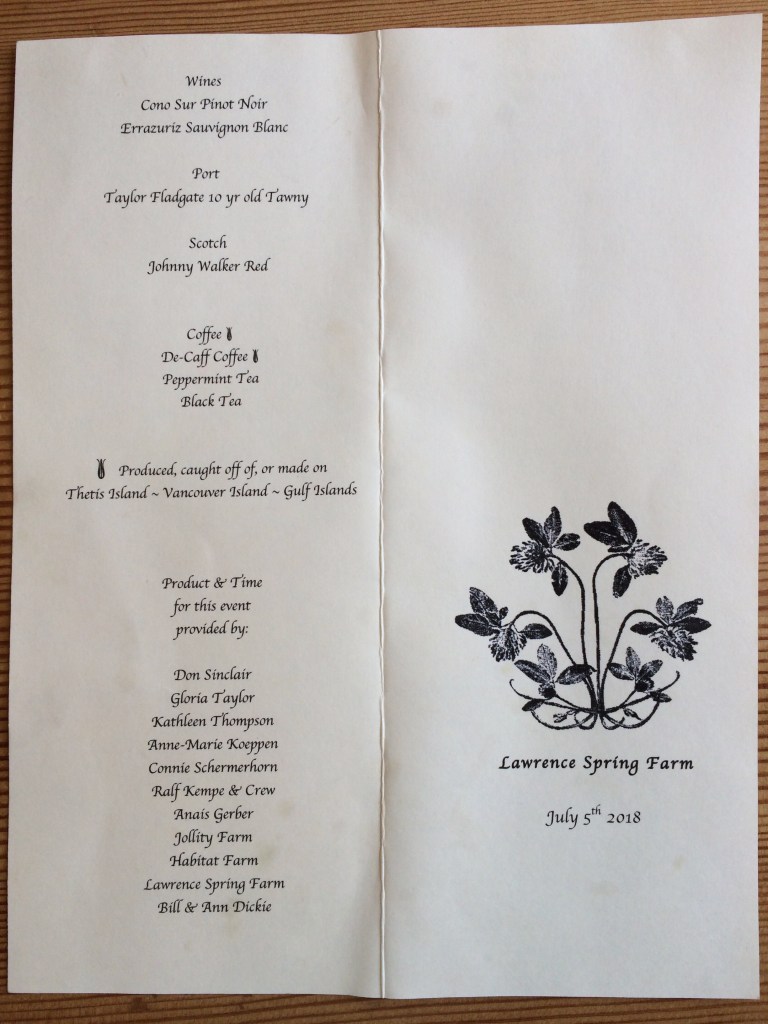 Wines
Cono Sur Pinot Noir
Errazuriz Sauvignon Blanc
Port
Taylor Fladgate 10 yr old Tawny
Scotch
Johnny Walker Red
Coffee
De-Caff Coffee
Peppermint Tea
Black Tea
Produced, caught off of, or made on
Thetis Island ~ Vancouver Island ~ Gulf Islands
Product & Time
for this event
provided by:
Don Sinclair
Gloria Taylor
Kathleen Thompson
Anne-Marie Koeppen
Connie Schermerhorn
Ralf Kempe & Crew
Anais Gerber
Jollity Farm
Habitat Farm
Lawrence Spring Farm
Bill & Ann Dickie
Lawrence Spring Farm
July 5th 2018